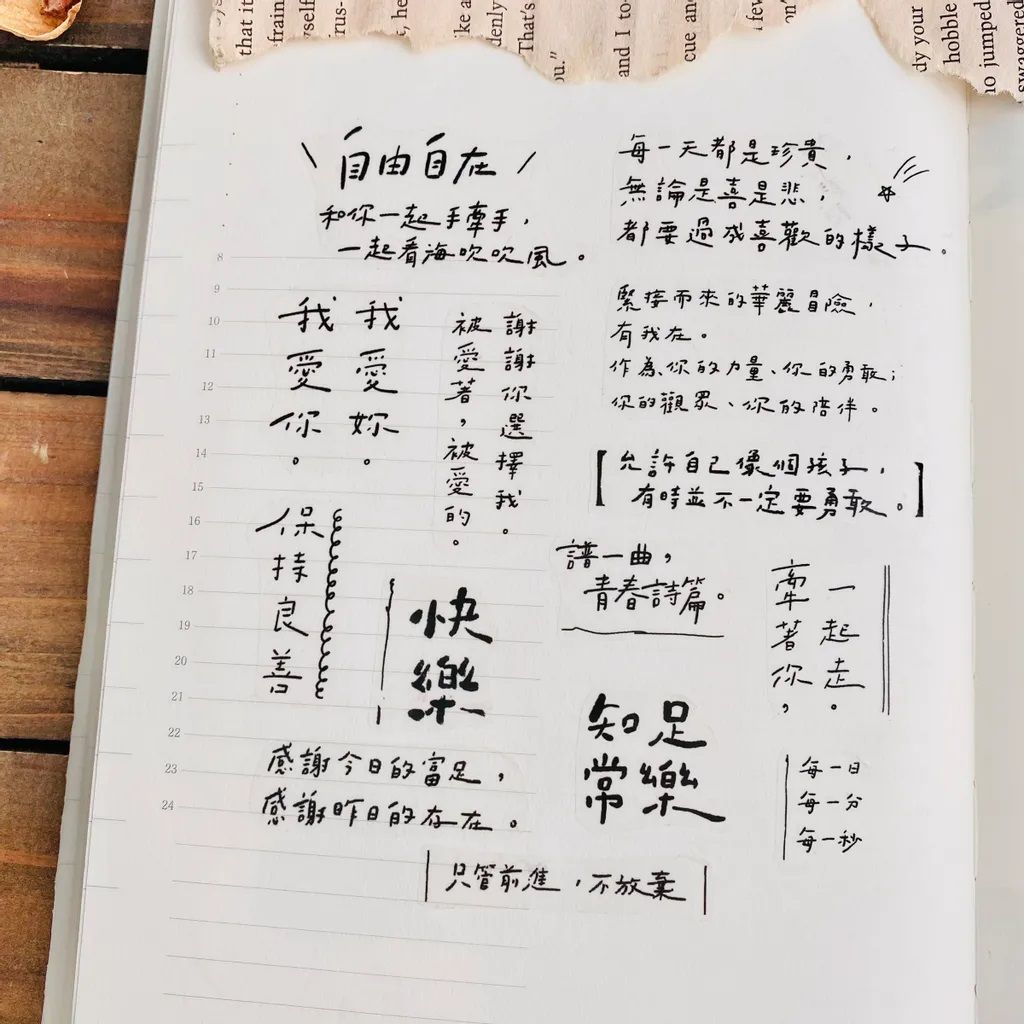 that it i
frain
yself
rus-
t, he
ike a
denly
That's
ou."
and I to
cue and
few
on't
dy your
hobble
no jumped
swaggered
自由自在
和你一起手牽手，
一起看海吹吹風。
每一天都是珍貴，
無論是喜是悲，
都要過成喜歡的樣子。
緊接而來的華麗冒險，
有我在。
作為你的力量、你的勇敢；
你的觀眾、你的陪伴。
我愛妳。
我愛你。
謝謝你選擇我。
被愛著，被愛的。
允許自己像個孩子，
有時並不一定要勇敢。
保持良善
快樂
譜一曲，
青春詩篇。
牽著你，
一起走。
知足
常樂
感謝今日的富足，
感謝昨日的存在。
每一日
每一分
每一秒
只管前進，不放棄
8
9
10
11
12
13
14
15
16
17
18
19
20
21
22
23
24